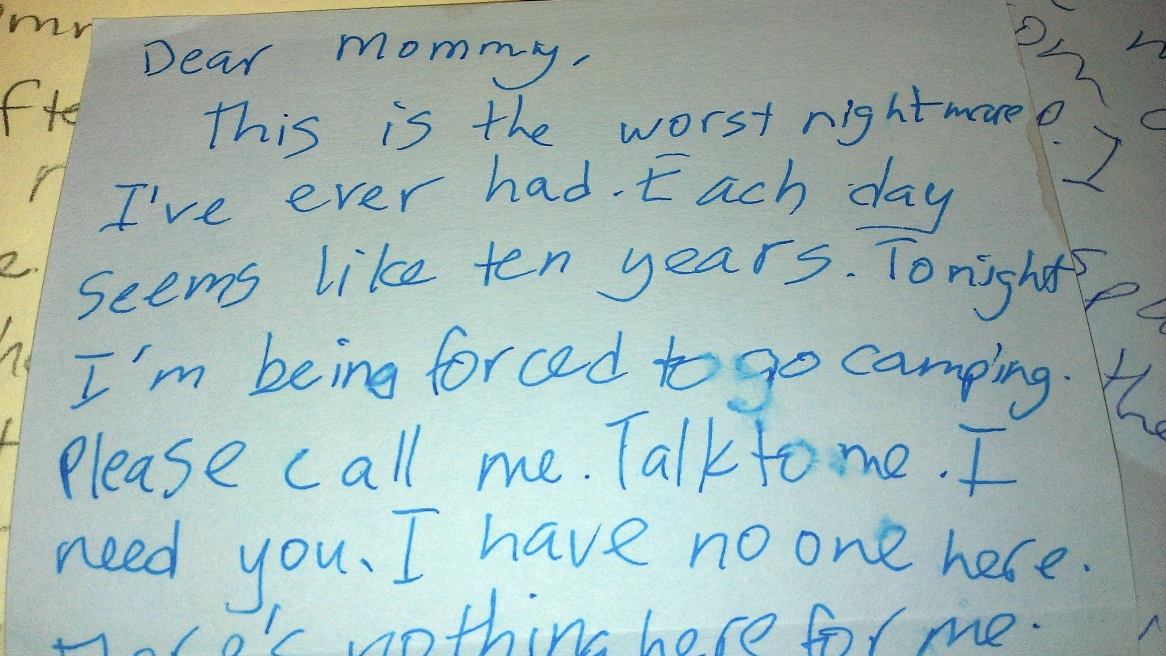 Dear Mommy,
This is the worst nightmare
I've ever had. Each day
seems like ten years. Tonight
I'm being forced to go camping.
Please call me. Talk to me. I
need you. I have no one here.
There's nothing here for me.